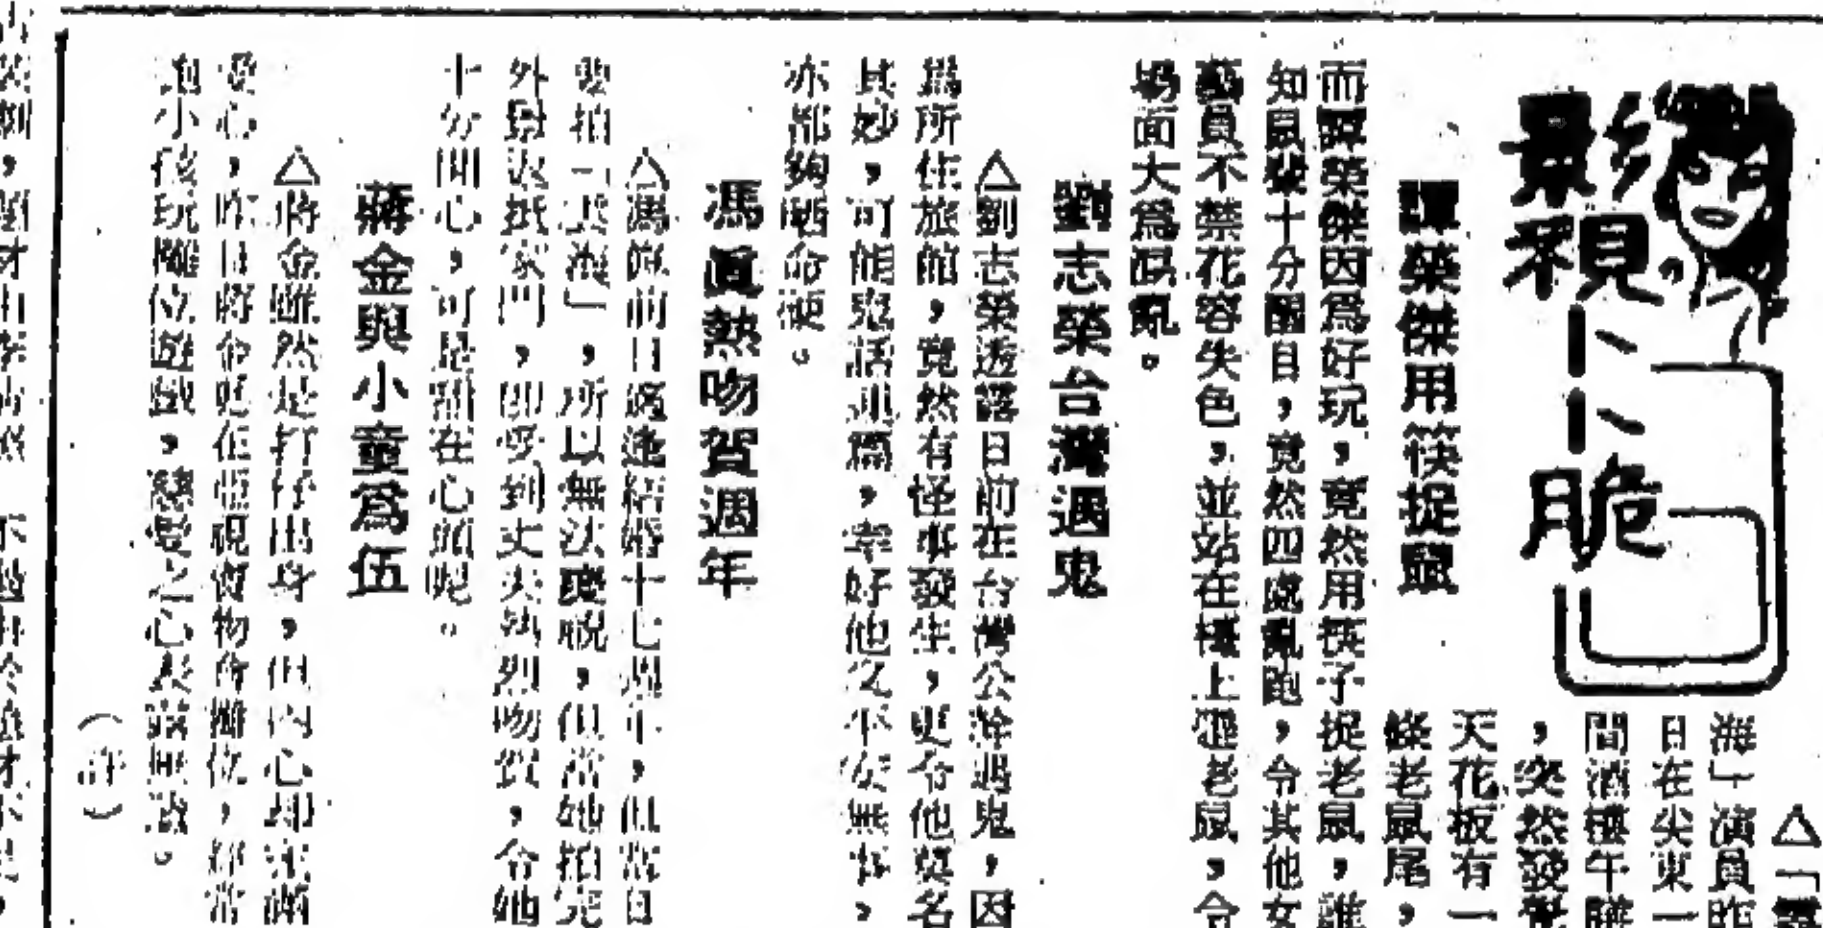 影視卜卜脆
譚榮傑用筷捉鼠
△「
海」演員昨
日在尖東一
間酒樓午膳
，突然發覺
天花板有一
條老鼠尾，
而譚榮傑因爲好玩，竟然用筷子捉老鼠，誰
知鼠變十分醒目，竟然四處亂跑，令其他女
藝員不禁花容失色，並站在檯上避老鼠，令
場面大爲混亂。
劉志榮台灣遇鬼
△劉志榮透露日前在台灣公幹遇鬼，因
爲所住旅館，竟然有怪事發生，更令他莫名
其妙，可能鬼話連篇，幸好他又不安無事，
亦都夠晒命硬。
馮眞熱吻賀週年
△馮眞前日適逢結婚十七週年，但當日
要拍「　」，所以無法慶祝，但當她拍完
外景返抵家門，即受到丈夫熱烈吻賀，令她
十分開心，可是甜在心頭呢。
蔣金與小童爲伍
△蔣金雖然是打仔出身，但內心却充滿
愛心，昨日蔣金更在亞視賣物會攤位，經常
跑小孩玩攤位遊戲，慈愛之心表露無遺。